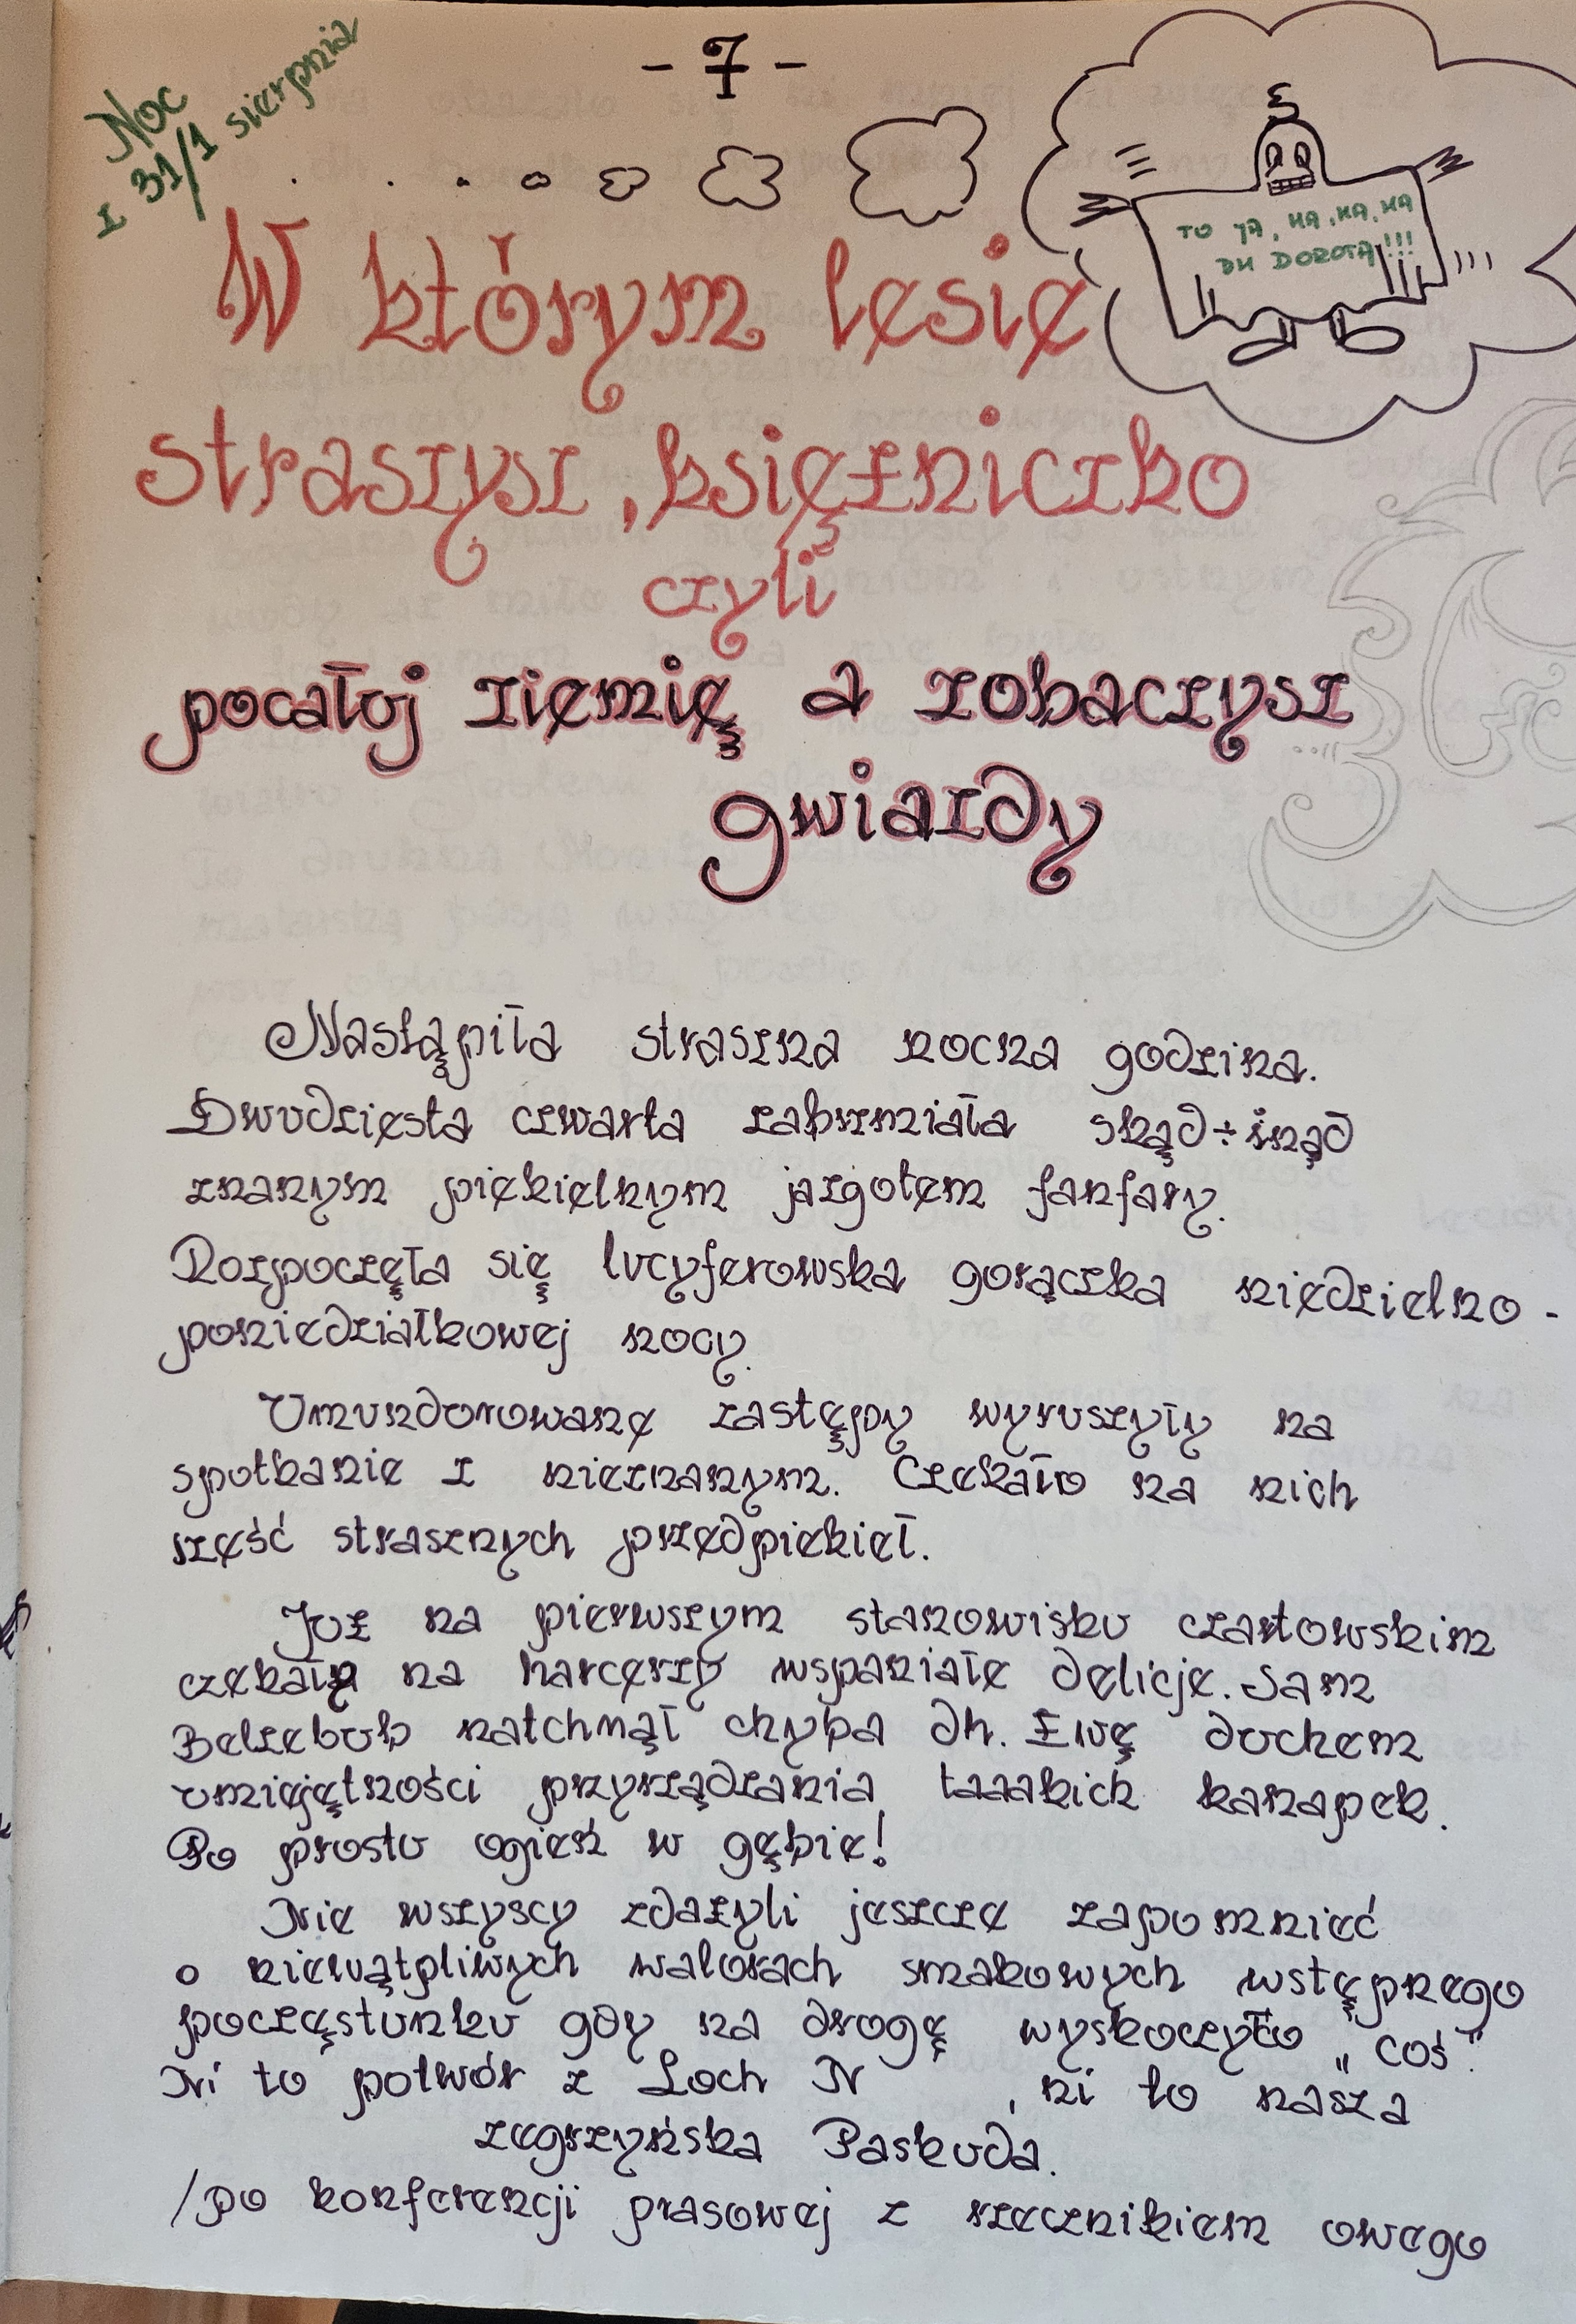 - 7 -
Noc
z 31/1 sierpnia
TO JA, HA, HA, HA
DH DOROTA!!!
W którym lesie
straszysz, księżniczko
czyli
pocałuj ziemię a zobaczysz
gwiazdy
Nastąpiła straszna nocna godzina.
Dwudziesta czwarta zabrzmiała skąd÷inąd
znanym piekielnym jazgotem fanfary.
Rozpoczęła się lucyferowska gorączka niedzielno-
poniedziałkowej nocy.
Umundurowane zastępy wyruszyły na
spotkanie z nieznanym. Czekało na nich
sześć strasznych przedpiekieł.
Już na pierwszym stanowisku czartowskim
czekały na harcerzy wspaniałe delicje. Sam
Belzebub natchnął chyba dh. Ewę duchem
umiejętności przyrządzania taaakich kanapek.
Po prostu ogień w gębie!
Nie wszyscy zdążyli jeszcze zapomnieć
o niewątpliwych walorach smakowych wstępnego
poczęstunku gdy na drogę wyskoczyło "coś".
Ni to potwór z Loch N , ni to nasza
zegrzyńska Paskuda.
/po konferencji prasowej z rzecznikiem owego